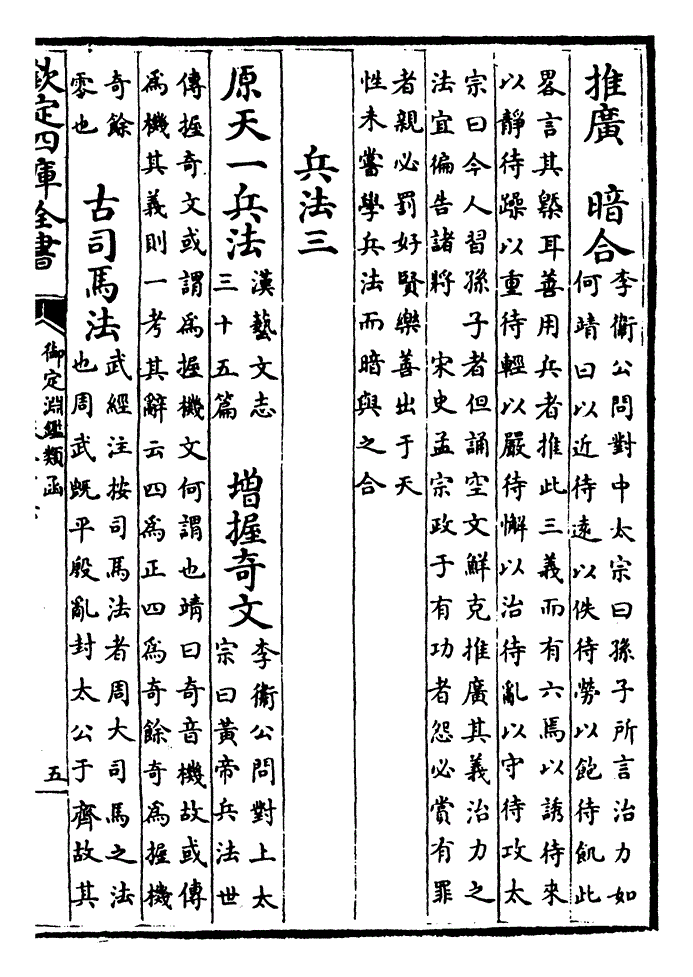 推廣　暗合
李衛公問對中太宗曰孫子所言治力如
何靖曰以近待遠以佚待勞以飽待飢此
畧言其槩耳善用兵者推此三義而有六焉以誘待來
以靜待躁以重待輕以嚴待懈以治待亂以守待攻太
宗曰今人習孫子者但誦空文鮮克推廣其義治力之
法宜徧告諸將　宋史孟宗政于有功者怨必賞有罪
者親必罰好賢樂善出于天
性未嘗學兵法而暗與之合
兵法三
原天一兵法
漢藝文志
三十五篇
增握奇文
李衛公問對上太
宗曰黃帝兵法世
傳握奇文或謂爲握機文何謂也靖曰奇音機故或傳
爲機其義則一考其辭云四爲正四爲奇餘奇爲握機
奇餘
零也
古司馬法
武經注按司馬法者周大司馬之法
也周武既平殷亂封太公于齊故其
欽定四庫全書
御定淵鑑類函
五